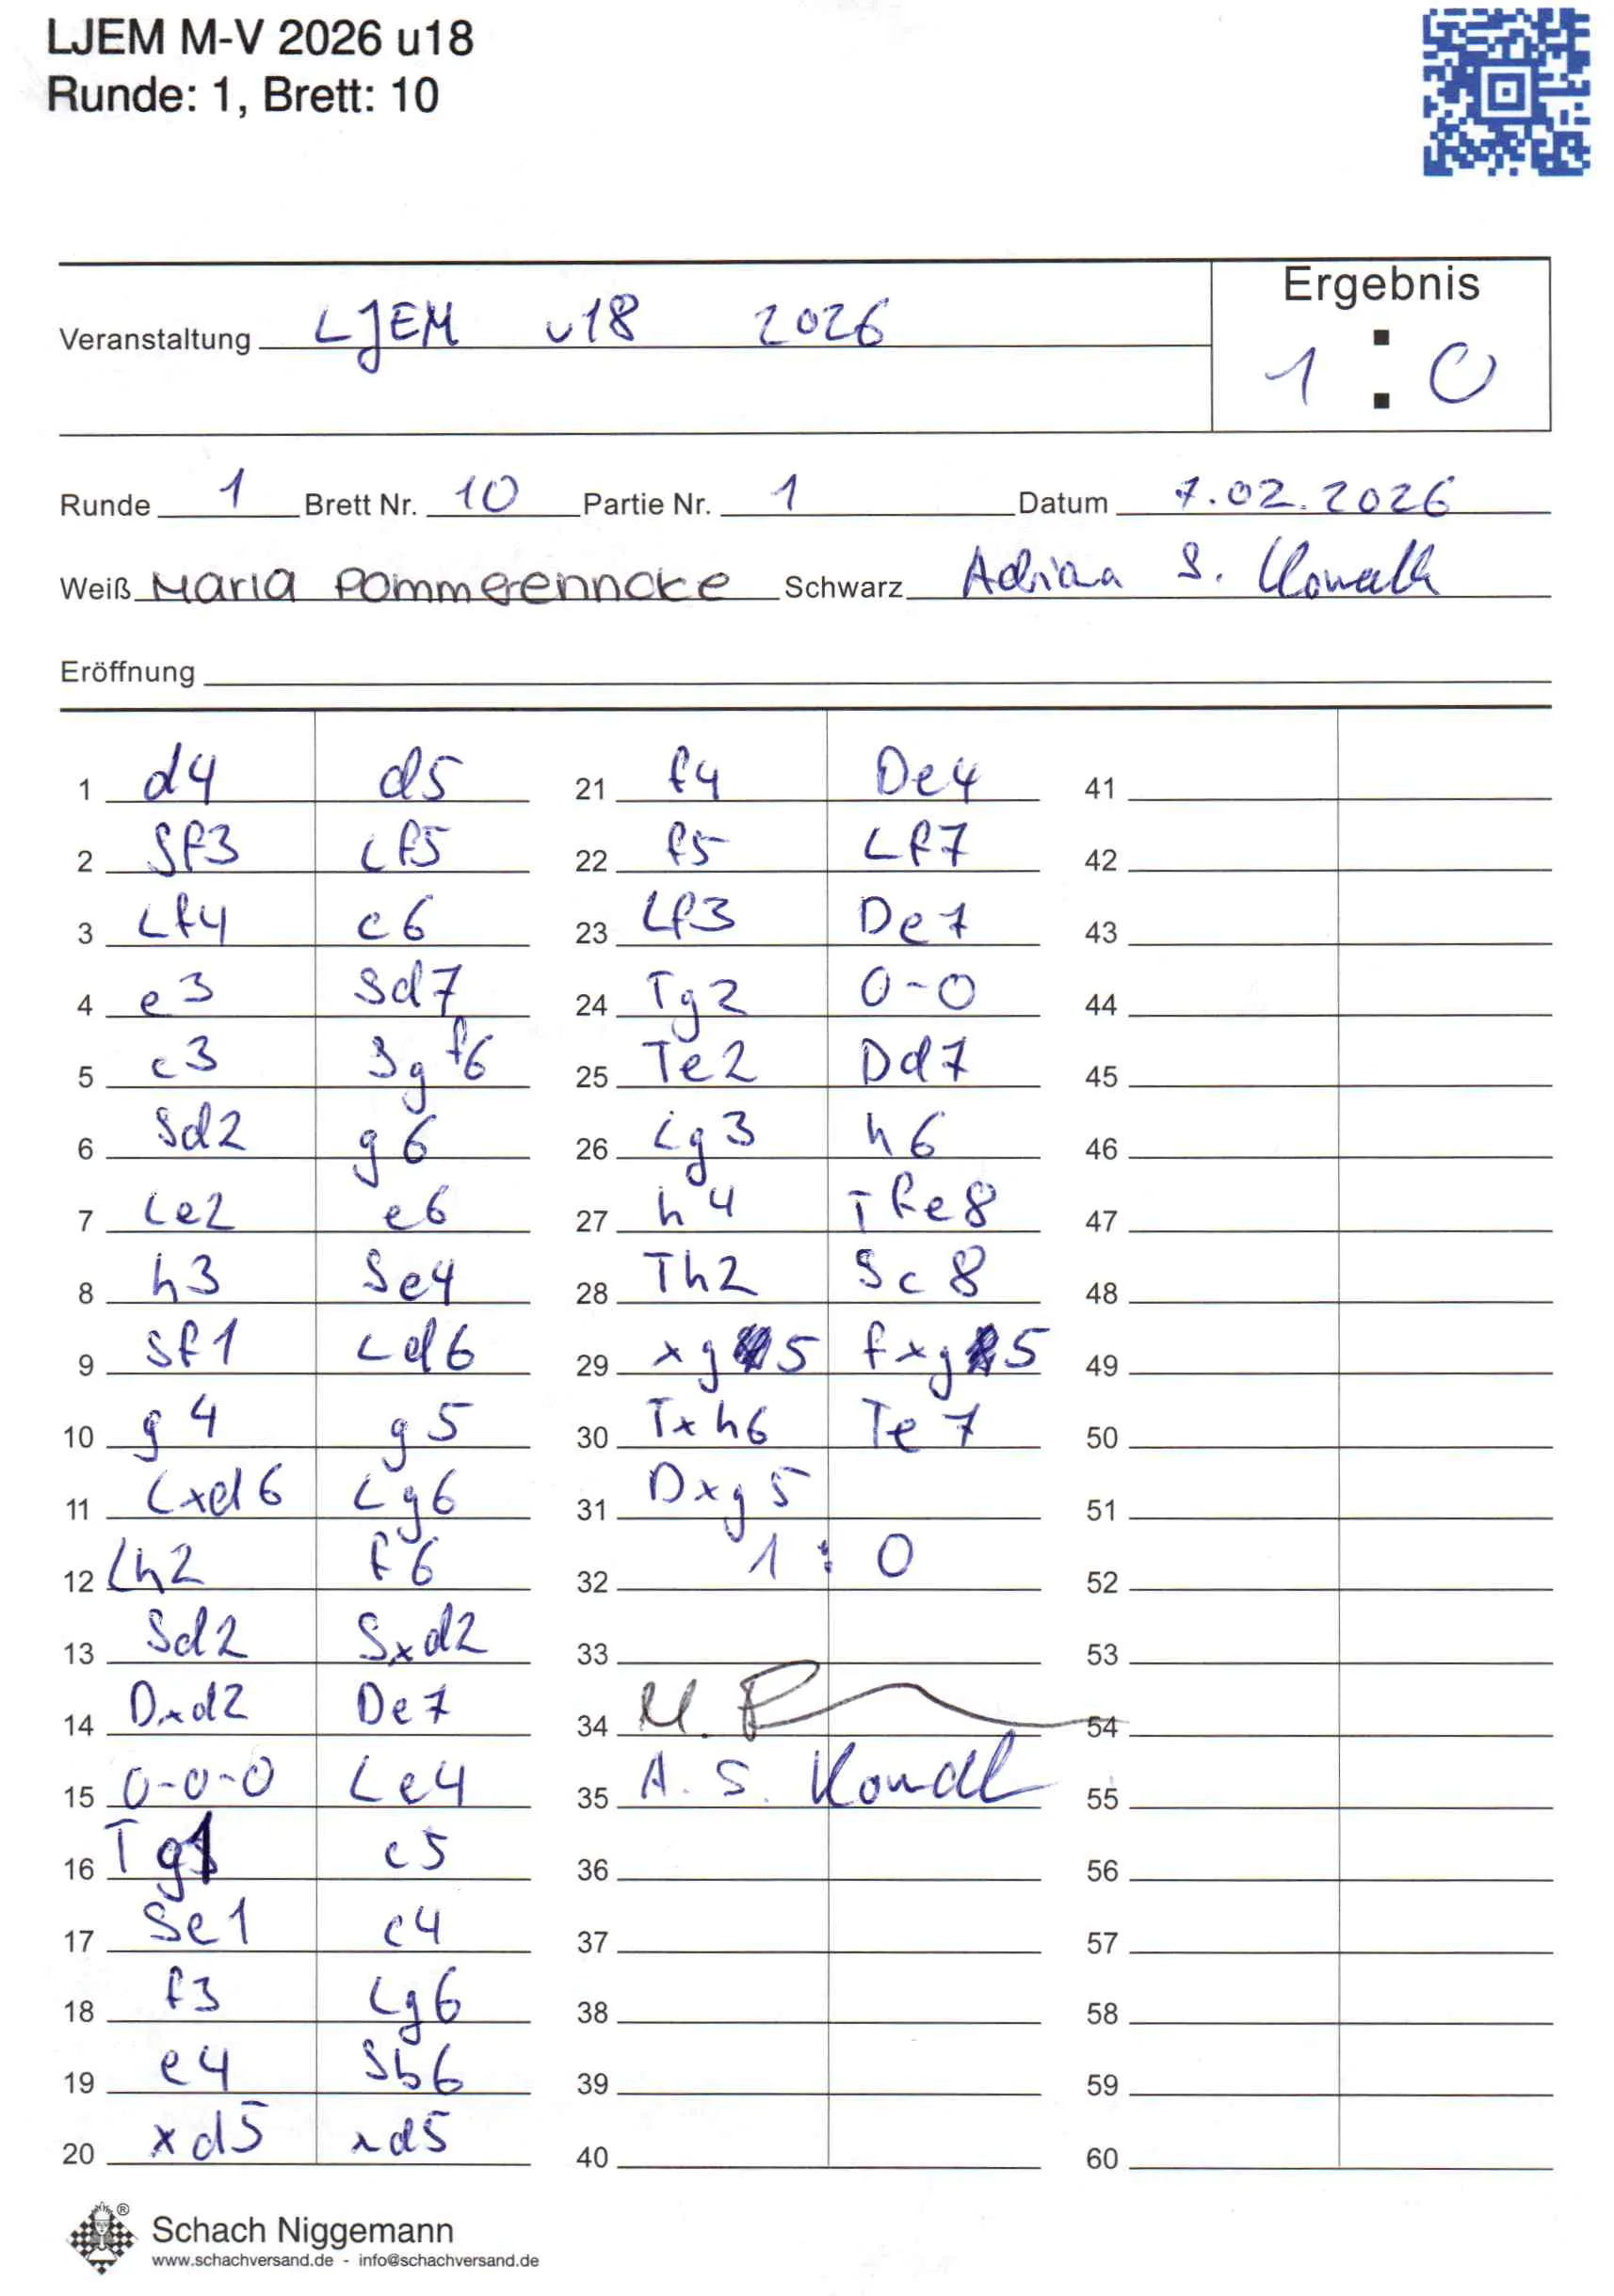 LJEM M-V 2026 u18
Runde: 1, Brett: 10
Ergebnis
Veranstaltung LJEM u18 2026
1 : 0
Runde 1 Brett Nr. 10 Partie Nr. 1 Datum 7.02.2026
Weiß Maria Pommerenncke Schwarz Adrian S.
Eröffnung
1 d4 d5
2 Sf3 Lf5
3 Lf4 c6
4 e3 Sd7
5 c3 Sgf6
6 Sd2 g6
7 Le2 e6
8 h3 Se4
9 Sf1 Ld6
10 g4 g5
11 Lxd6 Lg6
12 Lh2 f6
13 Sd2 Sxd2
14 Dxd2 De7
15 0-0-0 Le4
16 Tg1 c5
17 Se1 c4
18 f3 Lg6
19 e4 Sb6
20 xd5 xd5
21 f4 De4
22 f5 Lf7
23 Lf3 De7
24 Tg2 0-0
25 Te2 Dd7
26 Lg3 h6
27 h4 Tfe8
28 Th2 Sc8
29 xg5 fxg5
30 Txh6 Te7
31 Dxg5
32 1 : 0
33
34 M. P
35 A. S.
36
37
38
39
40
41
42
43
44
45
46
47
48
49
50
51
52
53
54
55
56
57
58
59
60
Schach Niggemann
www.schachversand.de - info@schachversand.de